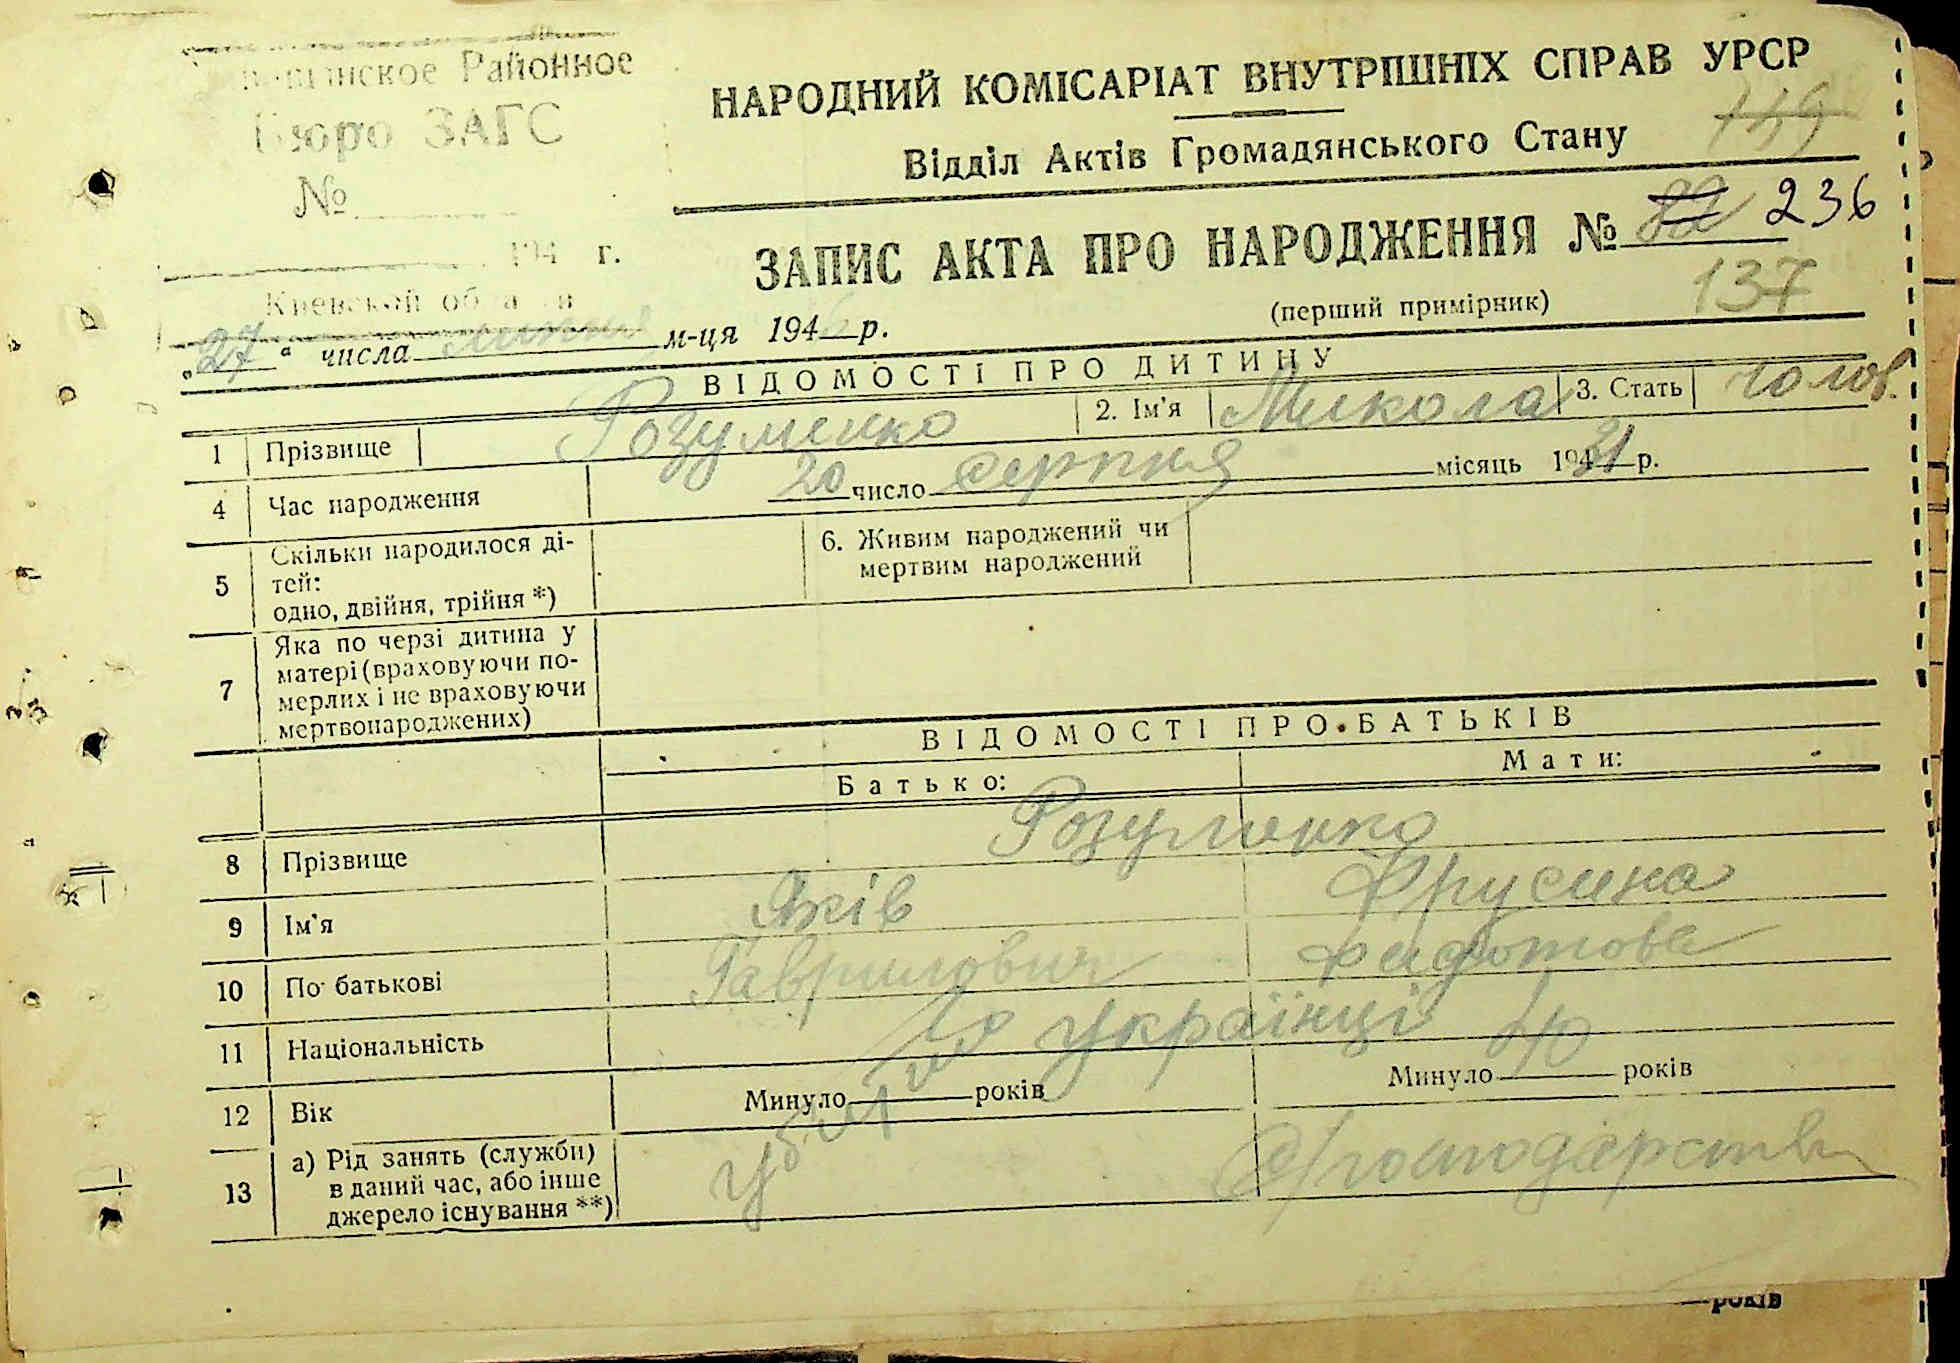 Районное
Бюро ЗАГС
№
194 г.
Киевской области
НАРОДНИЙ КОМІСАРІАТ ВНУТРІШНІХ СПРАВ УРСР
Відділ Актів Громадянського Стану
149
ЗАПИС АКТА ПРО НАРОДЖЕННЯ № 236
(перший примірник)
137
„27“ числа липня м-ця 1946 р.
ВІДОМОСТІ ПРО ДИТИНУ
1 Прізвище Розуменко 2. Ім'я Микола 3. Стать чолов.
4 Час народження 20 число серпня місяць 1931 р.
5 Скільки народилося ді-
тей:
одно, двійня, трійня *)
6. Живим народжений чи
мертвим народжений
7 Яка по черзі дитина у
матері (враховуючи по-
мерлих і не враховуючи
мертвонароджених)
ВІДОМОСТІ ПРО БАТЬКІВ
Батько: Мати:
8 Прізвище Розуменко
9 Ім'я Яків Фрусина
10 По батькові Гаврилович Федотова
11 Національність Українці
12 Вік Минуло років Минуло 40 років
13 а) Рід занять (служби)
в даний час, або інше
джерело існування **)
років